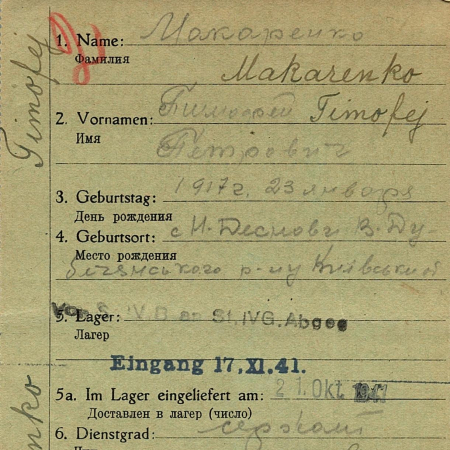 1. Name: Макаренко
Фамилия
Makarenko
2. Vornamen: Тимофей Timofej
Имя
Петрович
3. Geburtstag: 1917 г. 23 января
День рождения
4. Geburtsort: с Н-
Место рождения
р-ну
5. Lager: IV.B an St.IVG.Abgeg
Лагер
Eingang 17.XI.41.
5a. Im Lager eingeliefert am: 21. Okt 1941
Доставлен в лагер (число)
6. Dienstgrad: сержант
Timofej
enko